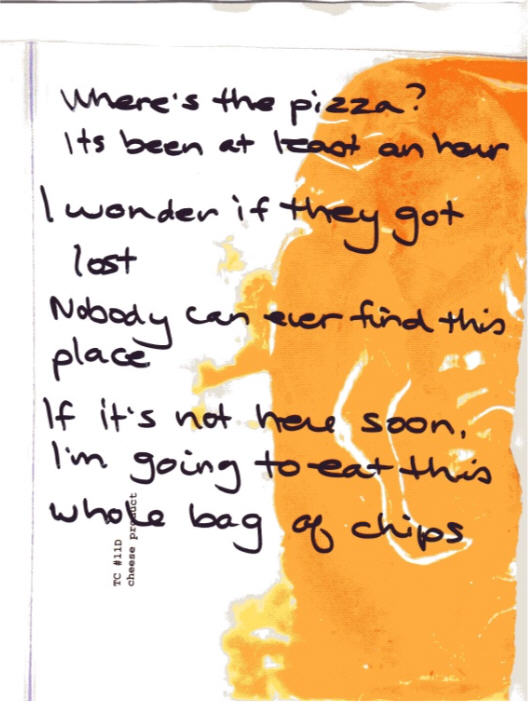 Where's the pizza?
Its been at least an hour
I wonder if they got
lost
Nobody can ever find this
place
If it's not here soon,
I'm going to eat this
whole bag of chips
TC #11D
cheese product